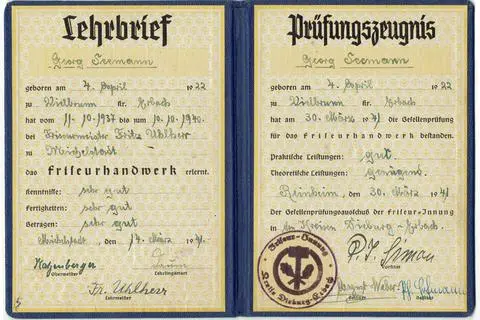 Lehrbrief
Georg Seemann
geboren am 4. April 1922
zu Vielbrunn Kr. Erbach
hat vom 11.10.1937 bis zum 10.10.1940.
bei Friseurmeister Fritz Uhlherr
zu Michelstadt
das Friseurhandwerk erlernt.
Kenntnisse: sehr gut
Fertigkeiten: sehr gut
Betragen: sehr gut
Michelstadt, den 14. März 1941.
Obermeister
Lehrlingswart
Fr. Uhlherr
Lehrmeister
Prüfungszeugnis
Georg Seemann
geboren am 4. April 1922
zu Vielbrunn Kr. Erbach
hat am 30. März 1941 die Gesellenprüfung
für das Friseurhandwerk bestanden.
Praktische Leistungen: gut.
Theoretische Leistungen: Genügend
Reinheim, den 30. März 1941.
Der Gesellenprüfungsausschuß der Friseur-Innung
in den Kreisen Dieburg-Erbach.
Friseur-Innung
Kreise Dieburg-Erbach